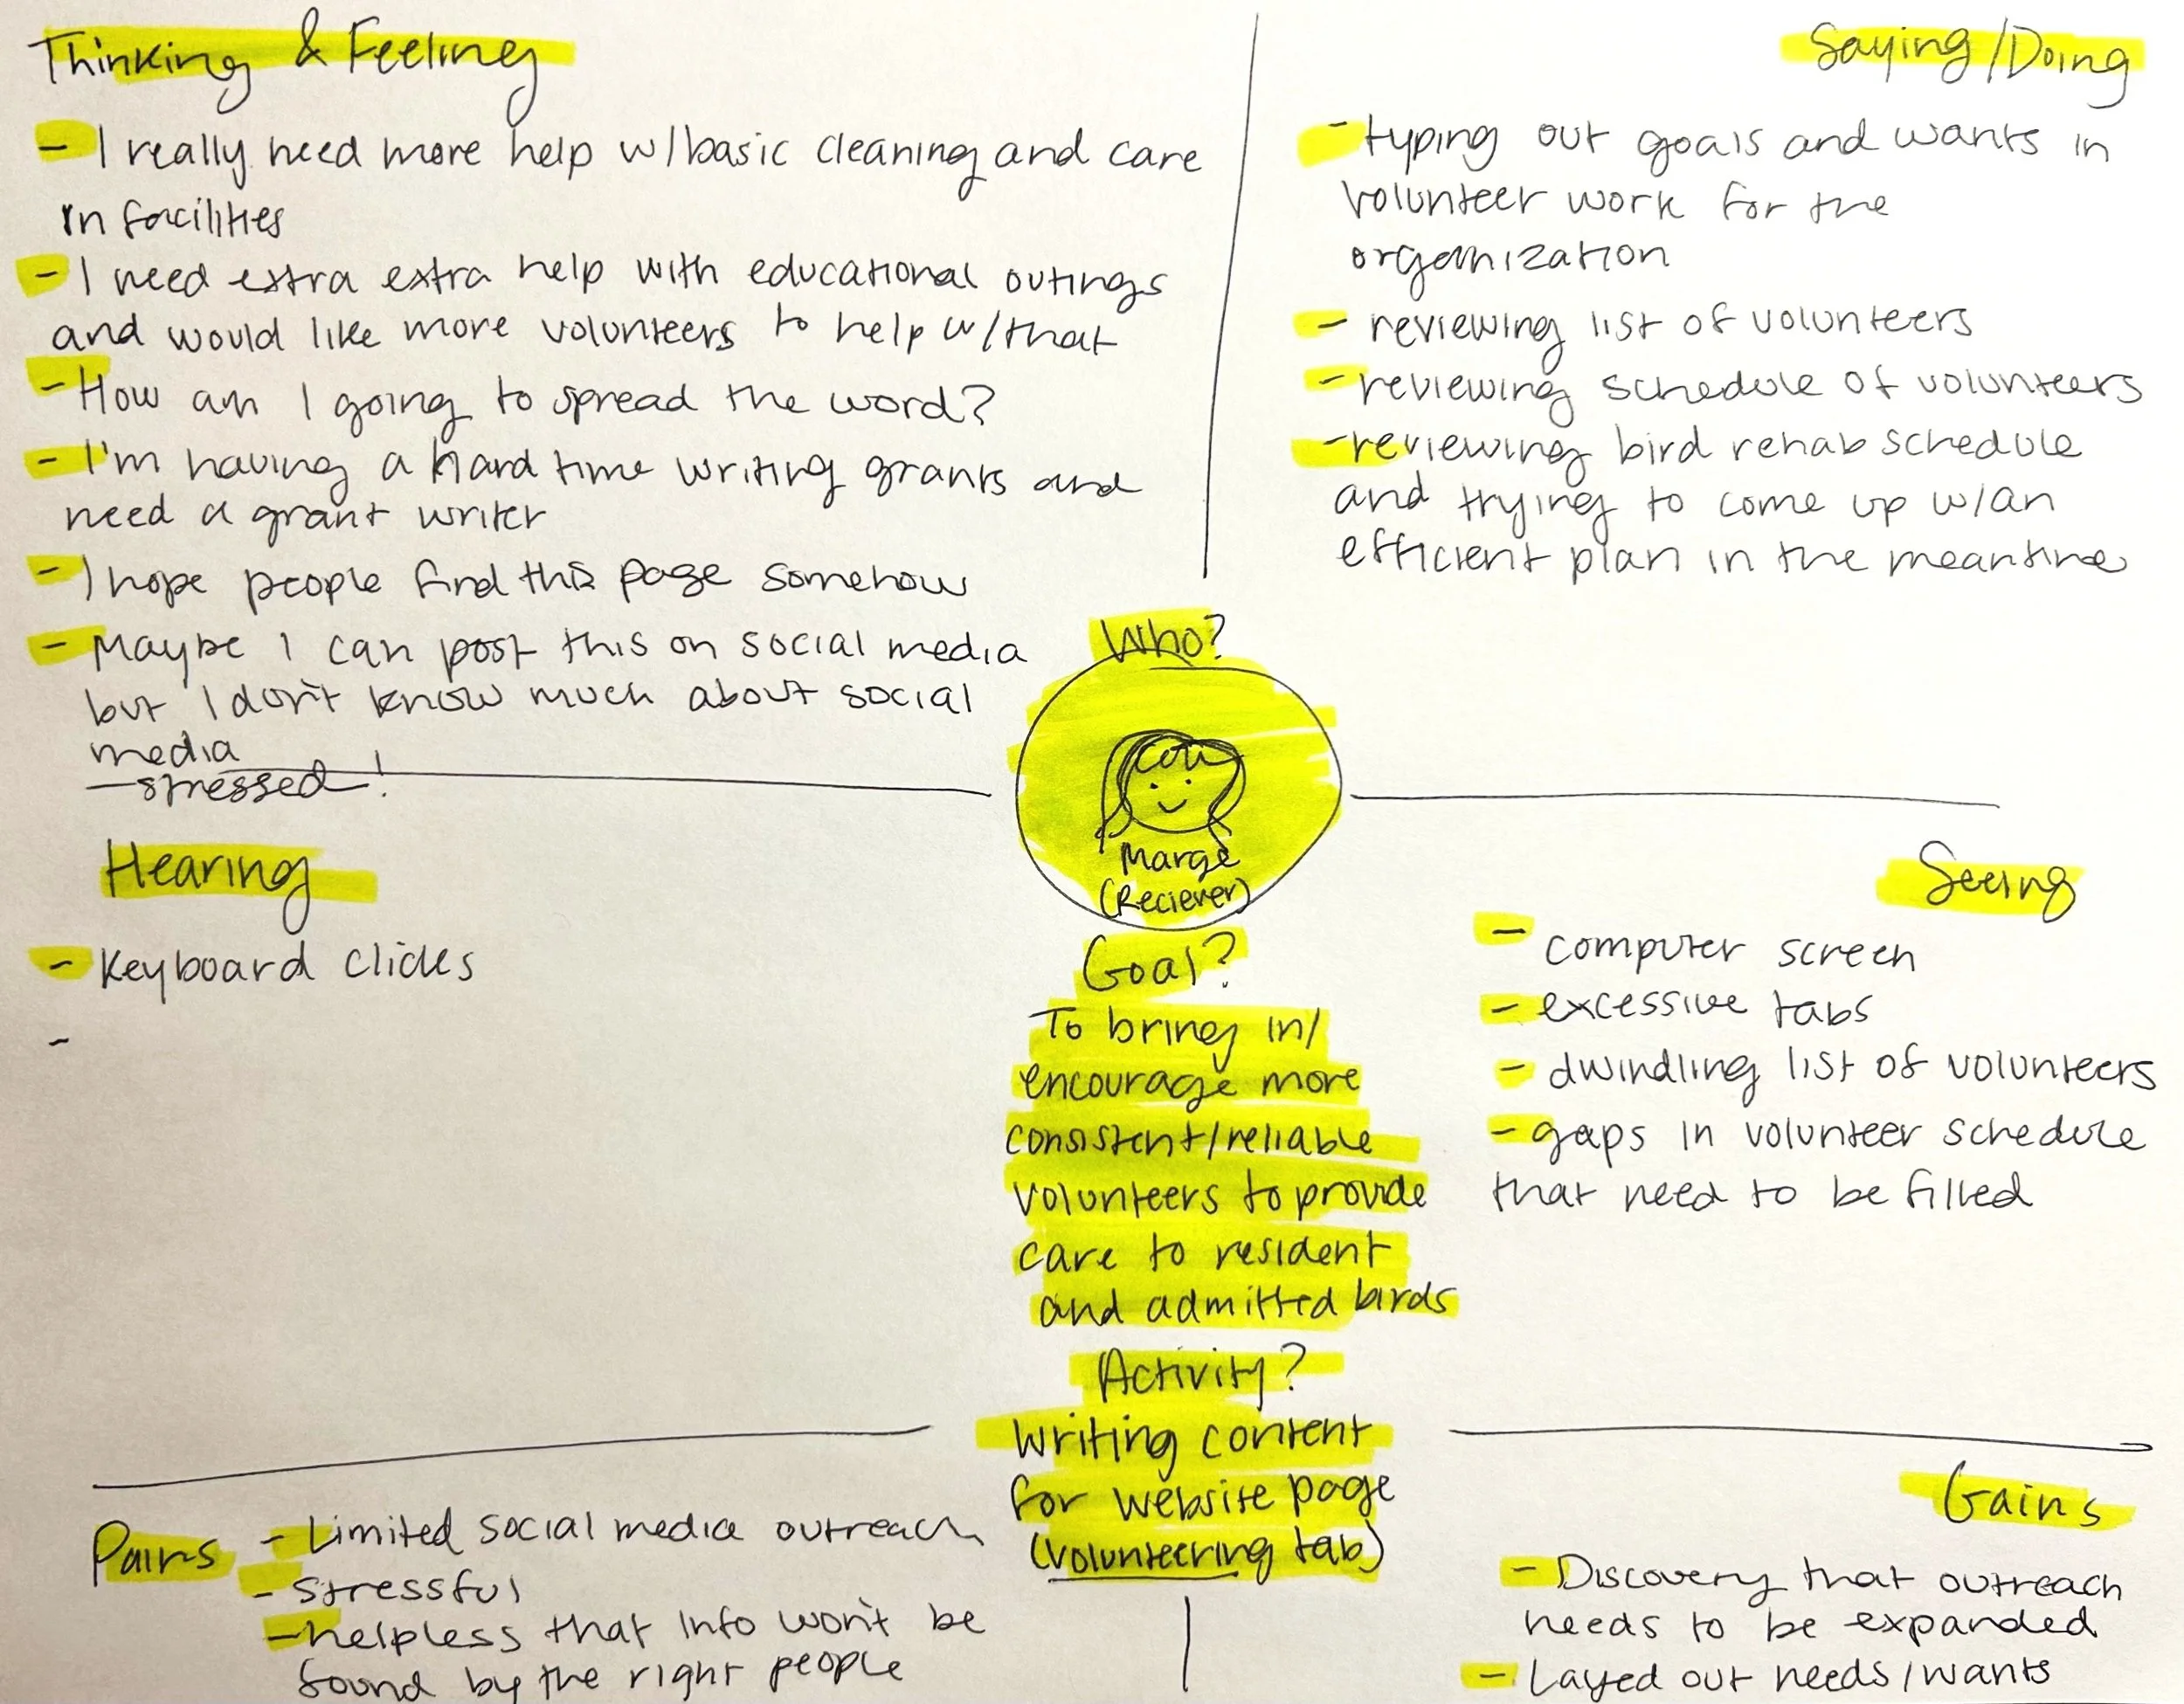 Thinking & Feeling
- I really need more help w/basic cleaning and care
in facilities
- I need extra extra help with educational outings
and would like more volunteers to help w/that
- How am I going to spread the word?
- I'm having a hard time writing grants and
need a grant writer
- I hope people find this page somehow
- Maybe I can post this on social media
but I don't know much about social
media
- stressed!
Saying/Doing
- typing out goals and wants in
volunteer work for the
organization
- reviewing list of volunteers
- reviewing schedule of volunteers
- reviewing bird rehab schedule
and trying to come up w/an
efficient plan in the meantime
Who?
Marge
(Reciever)
Goal?
To bring in/
encourage more
consistent/reliable
volunteers to provide
care to resident
and admitted birds
Activity?
Writing content
for website page
(volunteering tab)
Hearing
- Keyboard clicks
-
Seeing
- computer screen
- excessive tabs
- dwindling list of volunteers
- gaps in volunteer schedule
that need to be filled
Pains
- Limited social media outreach
- stressful
- helpless that info won't be
found by the right people
Gains
- Discovery that outreach
needs to be expanded
- Layed out needs/wants